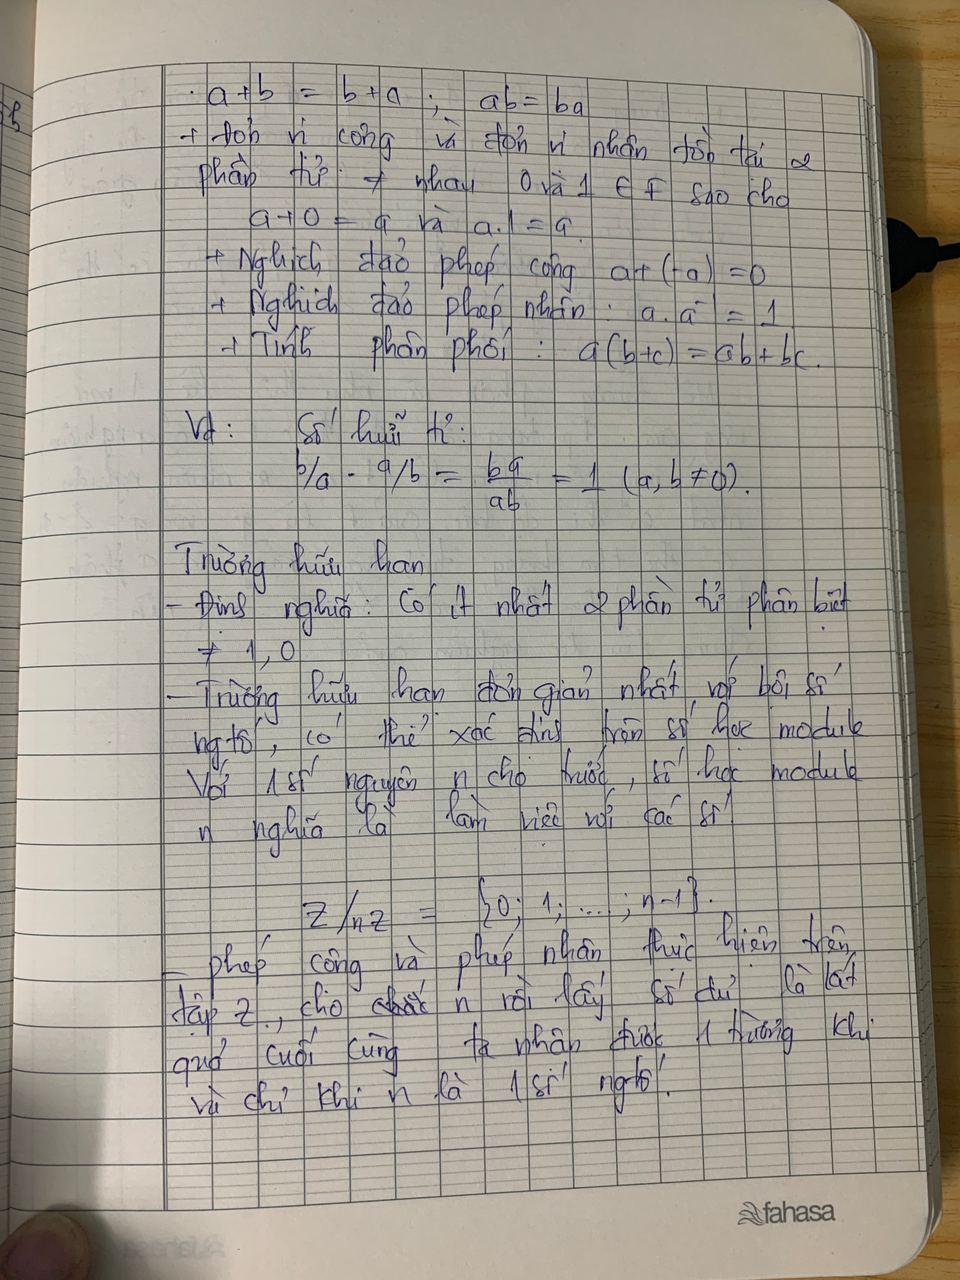 · a+b = b+a ; ab = ba
+ đơn vị cộng và đơn vị nhân tồn tại 2
phần tử ≠ nhau 0 và 1 ∈ F sao cho
a+0 = a và a.1 = a
+ Nghịch đảo phép cộng a+(-a) = 0
+ Nghịch đảo phép nhân : a.a⁻ = 1
+ Tính phân phối : a(b+c) = ab + bc.
Vd: Số hữu tỉ:
b/a · a/b = ba/ab = 1 (a, b ≠ 0).
Trường hữu hạn
- Định nghĩa: Có ít nhất 2 phần tử phân biệt
≠ 1, 0
- Trường hữu hạn đơn giản nhất với bội số
ngtố, có thể xác định trên số học module
Với 1 số nguyên n cho trước, số học module
n nghĩa là làm việc với các số
Z/nZ = {0; 1; ... ; n-1}.
- phép cộng và phép nhân thực hiện trên
tập Z, cho n rồi lấy số dư là kất
quả cuối cùng ta nhận được 1 trường khi
và chỉ khi n là 1 số ngtố.
fahasa